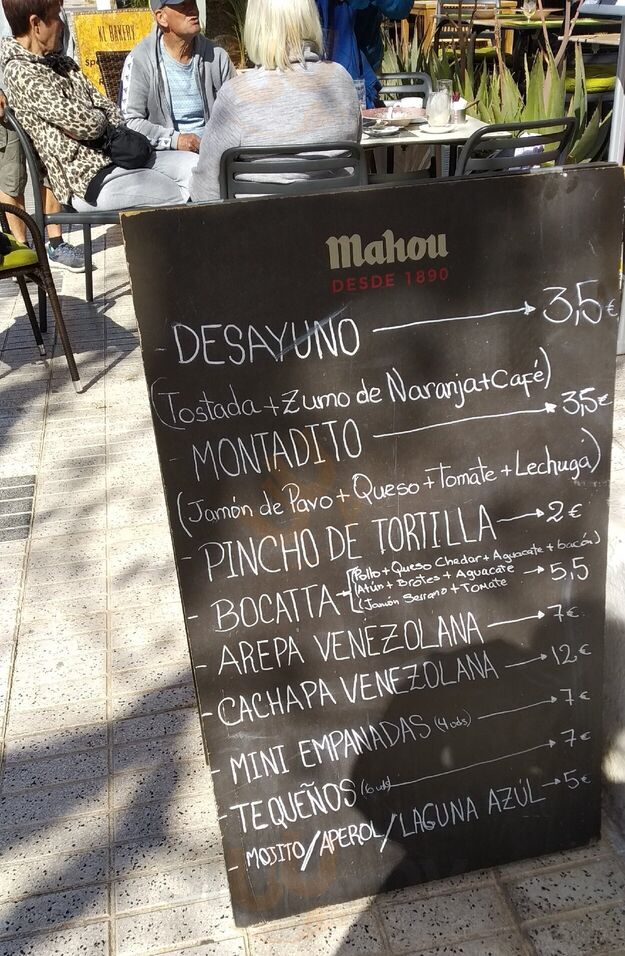 XL BAKERY
Mahou
DESDE 1890
- DESAYUNO → 3,5€
(Tostada + Zumo de Naranja + Café)
- MONTADITO → 3,5€
(Jamón de Pavo + Queso + Tomate + Lechuga)
- PINCHO DE TORTILLA → 2€
(Pollo + Queso Chedar + Aguacate + bacón)
- BOCATTA → (Atún + Brotes + Aguacate → 5,5
(Jamón Serrano + Tomate
- AREPA VENEZOLANA → 7€
- CACHAPA VENEZOLANA → 12€
- MINI EMPANADAS (4 uds) → 7€
- TEQUEÑOS (6 uds) → 7€
- MOJITO/APEROL/LAGUNA AZÚL → 5€